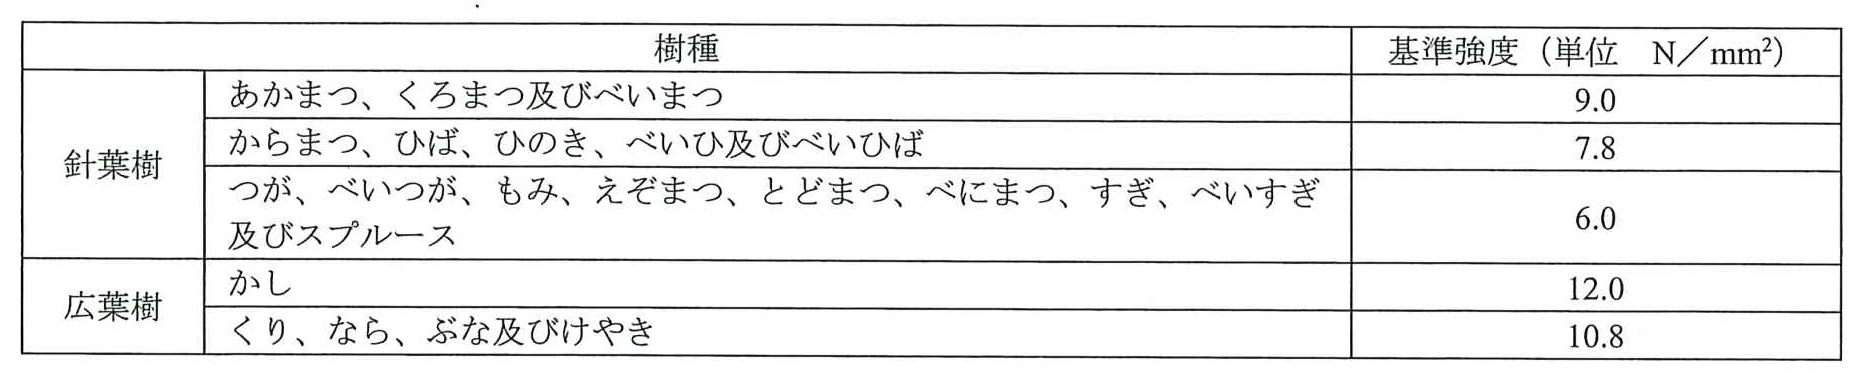 樹種
基準強度（単位　N／mm²）
針葉樹
あかまつ、くろまつ及びべいまつ
9.0
からまつ、ひば、ひのき、べいひ及びべいひば
7.8
つが、べいつが、もみ、えぞまつ、とどまつ、べにまつ、すぎ、べいすぎ
及びスプルース
6.0
広葉樹
かし
12.0
くり、なら、ぶな及びけやき
10.8